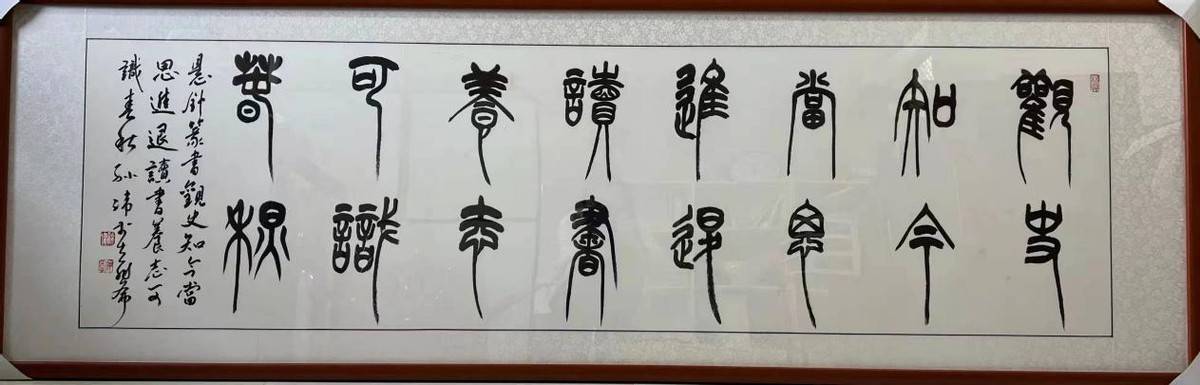 觀史
知今
當思
進退
讀書
養志
可識
春秋
悬針篆書觀史知今當
思進退讀書養志可
識春秋孙沛书